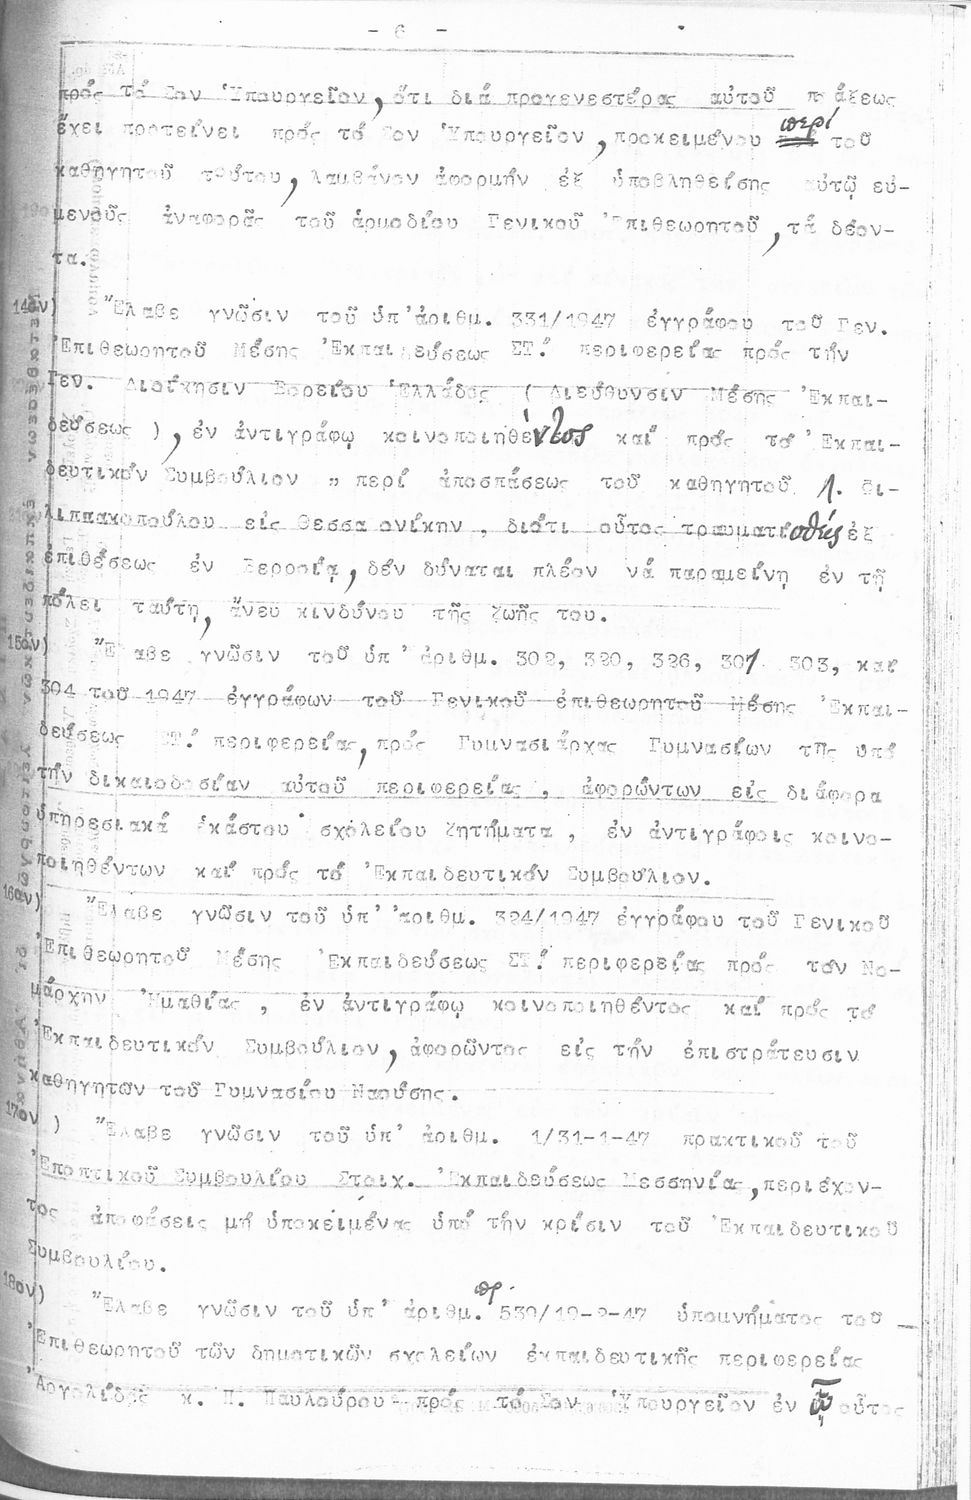 - 6 -
πρός τό Σον Ὑπουργεῖον, ὅτι διά προγενεστέρας αὐτοῦ πράξεως
ἔχει προτείνει πρός τό Σον Ὑπουργεῖον, προκειμένου περί τοῦ
καθηγητοῦ τούτου, λαμβάνον ἀφορμήν ἐξ ὑποβληθείσης αὐτῷ εὐ-
μενοῦς ἀναφορᾶς τοῦ ἁρμοδίου Γενικοῦ Ἐπιθεωρητοῦ, τά δέον-
τα.
14ον) Ἔλαβε γνῶσιν τοῦ ὑπ' ἀριθμ. 331/1947 ἐγγράφου τοῦ Γεν.
Ἐπιθεωρητοῦ Μέσης Ἐκπαιδεύσεως ΣΤ! περιφερείας πρός τήν
Γεν. Διοίκησιν Βορείου Ἑλλάδος ( Διεύθυνσιν Μέσης Ἐκπαι-
δεύσεως ), ἐν ἀντιγράφῳ κοινοποιηθέντος καί πρός τό Ἐκπαι-
δευτικόν Συμβούλιον " περί ἀποσπάσεως τοῦ καθηγητοῦ Ι. Φι-
λιππακοπούλου εἰς Θεσσαλονίκην , διότι οὗτος τραυματισθείς ἐξ
ἐπιθέσεως ἐν Βερροίᾳ, δέν δύναται πλέον νά παραμείνῃ ἐν τῇ
πόλει ταύτῃ, ἄνευ κινδύνου τῆς ζωῆς του.
15ον) Ἔλαβε γνῶσιν τοῦ ὑπ' ἀριθμ. 302, 320, 326, 301 303, καί
304 τοῦ 1947 ἐγγράφων τοῦ Γενικοῦ ἐπιθεωρητοῦ Μέσης Ἐκπαι-
δεύσεως ΣΤ! περιφερείας, πρός Γυμνασιάρχας Γυμνασίων τῆς ὑπό
τήν δικαιοδοσίαν αὐτοῦ περιφερείας , ἀφορώντων εἰς διάφορα
ὑπηρεσιακά ἑκάστου σχολείου ζητήματα , ἐν ἀντιγράφοις κοινο-
ποιηθέντων καί πρός τό Ἐκπαιδευτικόν Συμβούλιον.
16ον) Ἔλαβε γνῶσιν τοῦ ὑπ' ἀριθμ. 324/1947 ἐγγράφου τοῦ Γενικοῦ
Ἐπιθεωρητοῦ Μέσης Ἐκπαιδεύσεως ΣΤ! περιφερείας πρός τόν Νο-
μάρχην Ἠμαθίας , ἐν ἀντιγράφῳ κοινοποιηθέντος καί πρός τό
Ἐκπαιδευτικόν Συμβούλιον, ἀφορῶντος εἰς τήν ἐπιστράτευσιν
καθηγητῶν τοῦ Γυμνασίου Ναούσης.
17ον ) Ἔλαβε γνῶσιν τοῦ ὑπ' ἀριθμ. 1/31-1-47 πρακτικοῦ τοῦ
Ἐποπτικοῦ Συμβουλίου Στοιχ. Ἐκπαιδεύσεως Μεσσηνίας, περιέχον-
τος ἀποφάσεις μή ὑποκειμένας ὑπό τήν κρίσιν τοῦ Ἐκπαιδευτικοῦ
Συμβουλίου.
18ον) Ἔλαβε γνῶσιν τοῦ ὑπ' ἀριθμ. πρ. 539/19-2-47 ὑπομνήματος τοῦ
Ἐπιθεωρητοῦ τῶν δημοτικῶν σχολείων ἐκπαιδευτικῆς περιφερείας
Ἀργολίδος κ. Π. Παυλούρου πρός τό Σον Ὑπουργεῖον ἐν ᾧ οὗτος